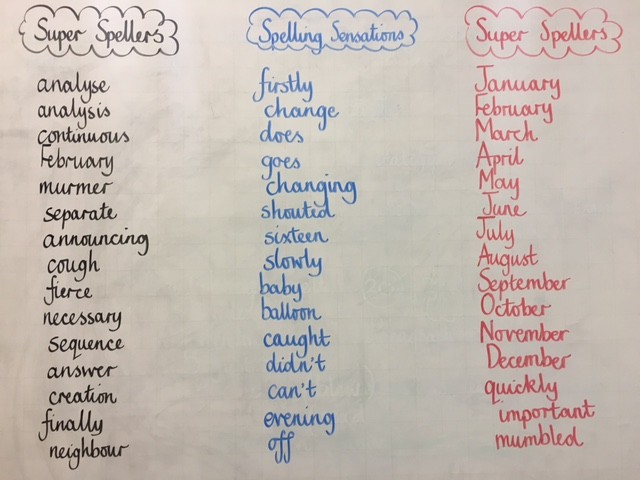 Super Spellers
analyse
analysis
continuous
February
murmer
separate
announcing
cough
fierce
necessary
sequence
answer
creation
finally
neighbour
Spelling Sensations
firstly
change
does
goes
changing
shouted
sixteen
slowly
baby
balloon
caught
didn't
can't
evening
off
Super Spellers
January
February
March
April
May
June
July
August
September
October
November
December
quickly
important
mumbled